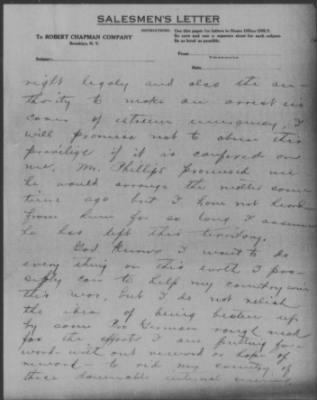 SALESMEN'S LETTER
To ROBERT CHAPMAN COMPANY
Brooklyn, N. Y.
INSTRUCTIONS: Use this paper for letters to Home Office ONLY.
Be sure and use a separate sheet for each subject.
Be as brief as possible.
Subject
From
Date
right legaly and also the au-
thority to make an arrest in
cases of extreme emergency. I
will promise not to abuse this
privilege if it is confered on
me. Mr. Phillips promised me
he would arrange the matter some
time ago but I have not heard
from him for so long I assume
he has left this territory.
God knows I want to do
every thing on this earth I pos-
sibly can to help my country win
this war, but I do not relish
the idea of being beaten up
by some Pro German rough neck
for the efforts I am putting for-
ward with out reward or hope of
reward - to rid my country of
these damnable internal enemies